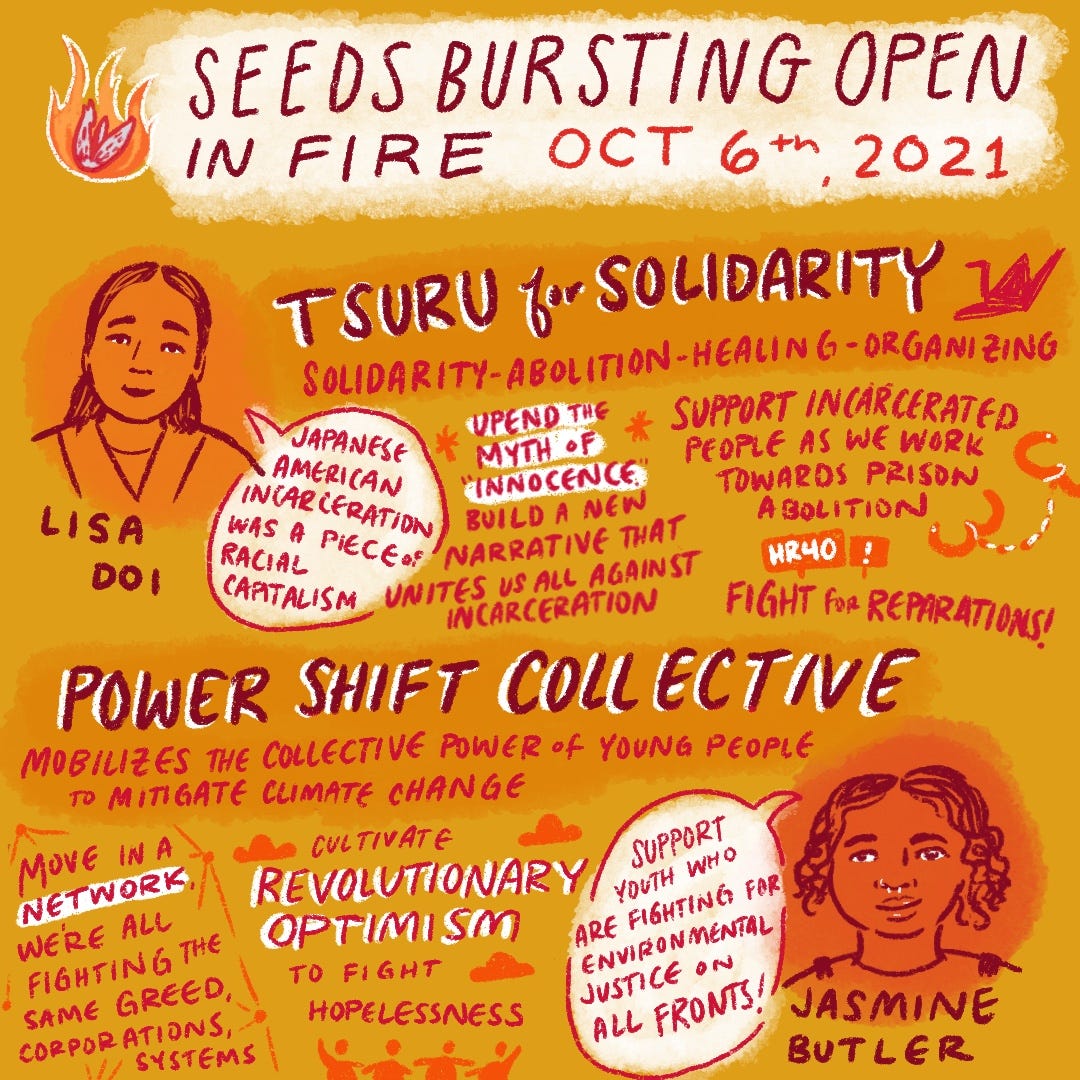 SEEDS BURSTING OPEN
IN FIRE OCT 6th, 2021
TSURU for SOLIDARITY
SOLIDARITY-ABOLITION-HEALING-ORGANIZING
LISA
DOI
JAPANESE
AMERICAN
INCARCERATION
WAS A PIECE of
RACIAL
CAPITALISM
UPEND THE
MYTH OF
"INNOCENCE"
BUILD A NEW
NARRATIVE THAT
UNITES US ALL AGAINST
INCARCERATION
SUPPORT INCARCERATED
PEOPLE AS WE WORK
TOWARDS PRISON
ABOLITION
HR40 !
FIGHT for REPARATIONS!
POWER SHIFT COLLECTIVE
MOBILIZES THE COLLECTIVE POWER of YOUNG PEOPLE
TO MITIGATE CLIMATE CHANGE
MOVE IN A
NETWORK.
WE'RE ALL
FIGHTING THE
SAME GREED,
CORPORATIONS,
SYSTEMS
CULTIVATE
REVOLUTIONARY
OPTIMISM
TO FIGHT
HOPELESSNESS
SUPPORT
YOUTH WHO
ARE FIGHTING FOR
ENVIRONMENTAL
JUSTICE ON
ALL FRONTS!
JASMINE
BUTLER